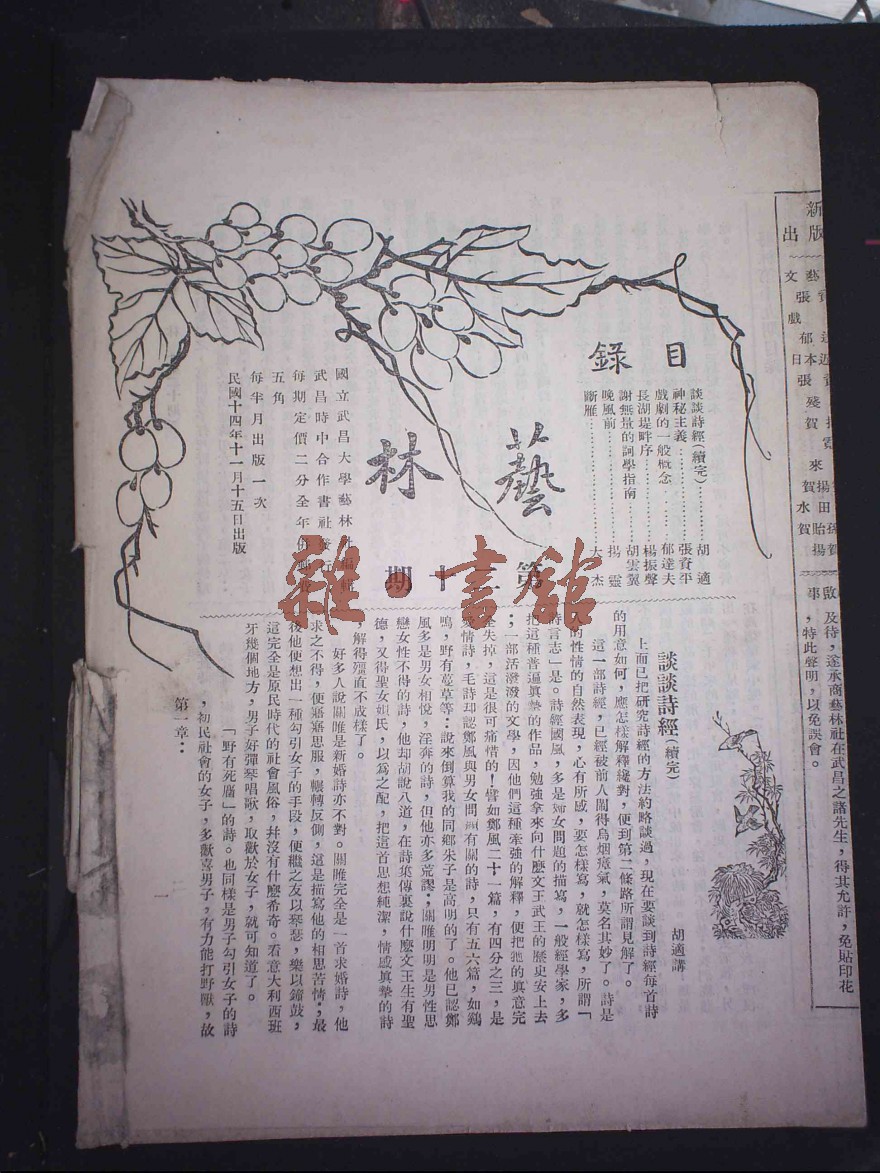 新版
出
目錄
談談詩經(續完)………胡適
神秘主義………張資平
戲劇的一般概念………郁達夫
長湖堤畔序………楊振聲
謝無量的詞學指南………胡雲翼
晚風前………揚靈
斷雁………大杰
藝林
第二十期
國立武昌大學藝林社編輯
武昌時中合作書社發行
每期定價二分全年
五角
每半月出版一次
民國十四年十一月十五日出版
雜·書館
啟事
及待,遂承商藝林社在武昌之諸先生,得其允許,免貼印花
,特此聲明,以免誤會。
談談詩經(續完)
胡適講
上而已把研究詩經的方法約略談過,現在要談到詩經每首詩
的用意如何,應怎樣解釋纔對,便到第二條路所謂見解了。
這一部詩經,已經被前人鬧得烏烟瘴氣,莫名其妙了。詩是
人的性情的自然表現,心有所感,要怎樣寫,就怎樣寫,所謂「
詩言志」是。詩經國風,多是婦女問題的描寫,一般經學家,多
把這種普逼真摯的作品,勉強拿來向什麼文王武王的歷史安上去
;一部活潑潑的文學,因他們這種牽強的解釋,便把牠的真意完
全失掉,這是很可痛惜的!譬如鄭風二十一篇,有四分之三,是
愛情詩,毛詩却認鄭風與男女問題有關的詩,只有五六篇,如鷄
鳴,野有蔓草等:說來倒算我的同鄉朱子是高明的了。他已認鄭
風多是男女相悅,淫奔的詩,但他亦多荒謬;關雎明明是男性思
戀女性不得的詩,他却胡說八道,在詩集傳裏說什麽文王生有聖
德,又得聖女姒氏,以爲之配,把這首思想純潔,情感真摯的詩
,解得殭直不成樣了。
好多人說關雎是新婚詩亦不對。關雎完全是一首求婚詩,他
求之不得,便寤寐思服,輾轉反側,這是描寫他的相思苦情;最
後他便想出一種勾引女子的手段,便繼之友以琴瑟,樂以鐘鼓,
這完全是原民時代的社會風俗,幷沒有什麽希奇。看意大利西班
牙幾個地方,男子好彈琴唱歌,取歡於女子,就可知道了。
「野有死麕」的詩。也同樣是男子勾引女子的詩
,初民社會的女子,多歡喜男子,有力能打野獸,故
第一章:
一